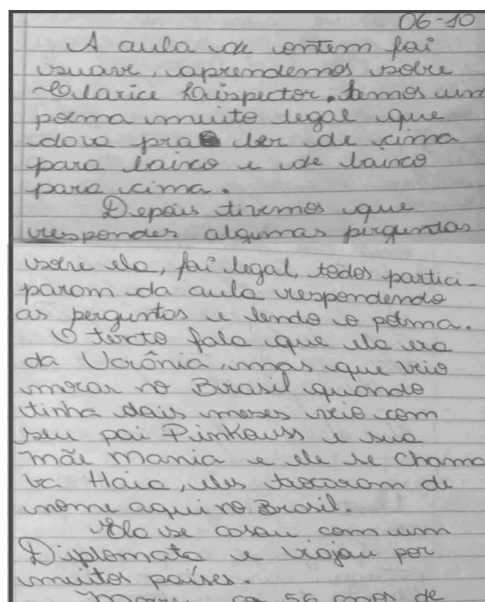 06-10
A aula de ontem foi
suave, aprendemos sobre
Clarice Lispector. temos um
poema muito legal que
dava pra ler de cima
para baixo e de baixo
para cima.
Depois tivemos que
responder algumas perguntas
sobre ela, foi legal, todos partici-
param da aula respondendo
as perguntas e lendo o poema.
O texto fala que ela era
da Ucrânia, mas que veio
morar no Brasil quando
tinha dois meses veio com
seu pai Pinkouss e sua
mãe Mania e ele se chama
va Haia, eles trocaram de
nome aqui no Brasil.
Ela se casou com um
Diplomata e viajou por
muitos países.
56 anos de